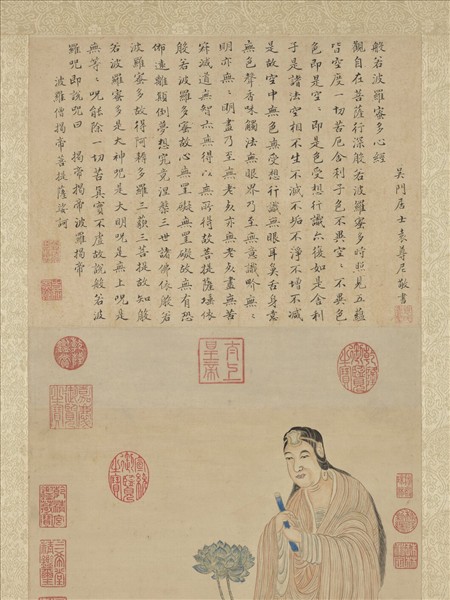 般若波羅蜜多心經
吳門居士袁尊尼敬書
觀自在菩薩行深般若波羅蜜多時照見五蘊
皆空度一切苦厄舍利子色不異空〻不異色
色即是空〻即是色受想行識亦復如是舍利
子是諸法空相不生不滅不垢不淨不增不減
是故空中無色無受想行識無眼耳鼻舌身意
無色聲香味觸法無眼界乃至無意識界無〻
明亦無〻明盡乃至無老死亦無老死盡無苦
集滅道無智亦無得以無所得故菩提薩埵依
般若波羅蜜多故心無罣礙無罣礙故無有恐
怖遠離顛倒夢想究竟涅槃三世諸佛依般若
波羅蜜多故得阿耨多羅三藐三菩提故知般
若波羅蜜多是大神呪是大明呪是無上呪是
無等〻呪能除一切苦真實不虛故說般若波
羅呪即說呪曰 揭帝揭帝波羅揭帝
波羅僧揭帝菩提薩婆訶
太上皇帝
乾隆御覽之寶
嘉慶御覽之寶
宣統御覽之寶
三希堂精鑑璽